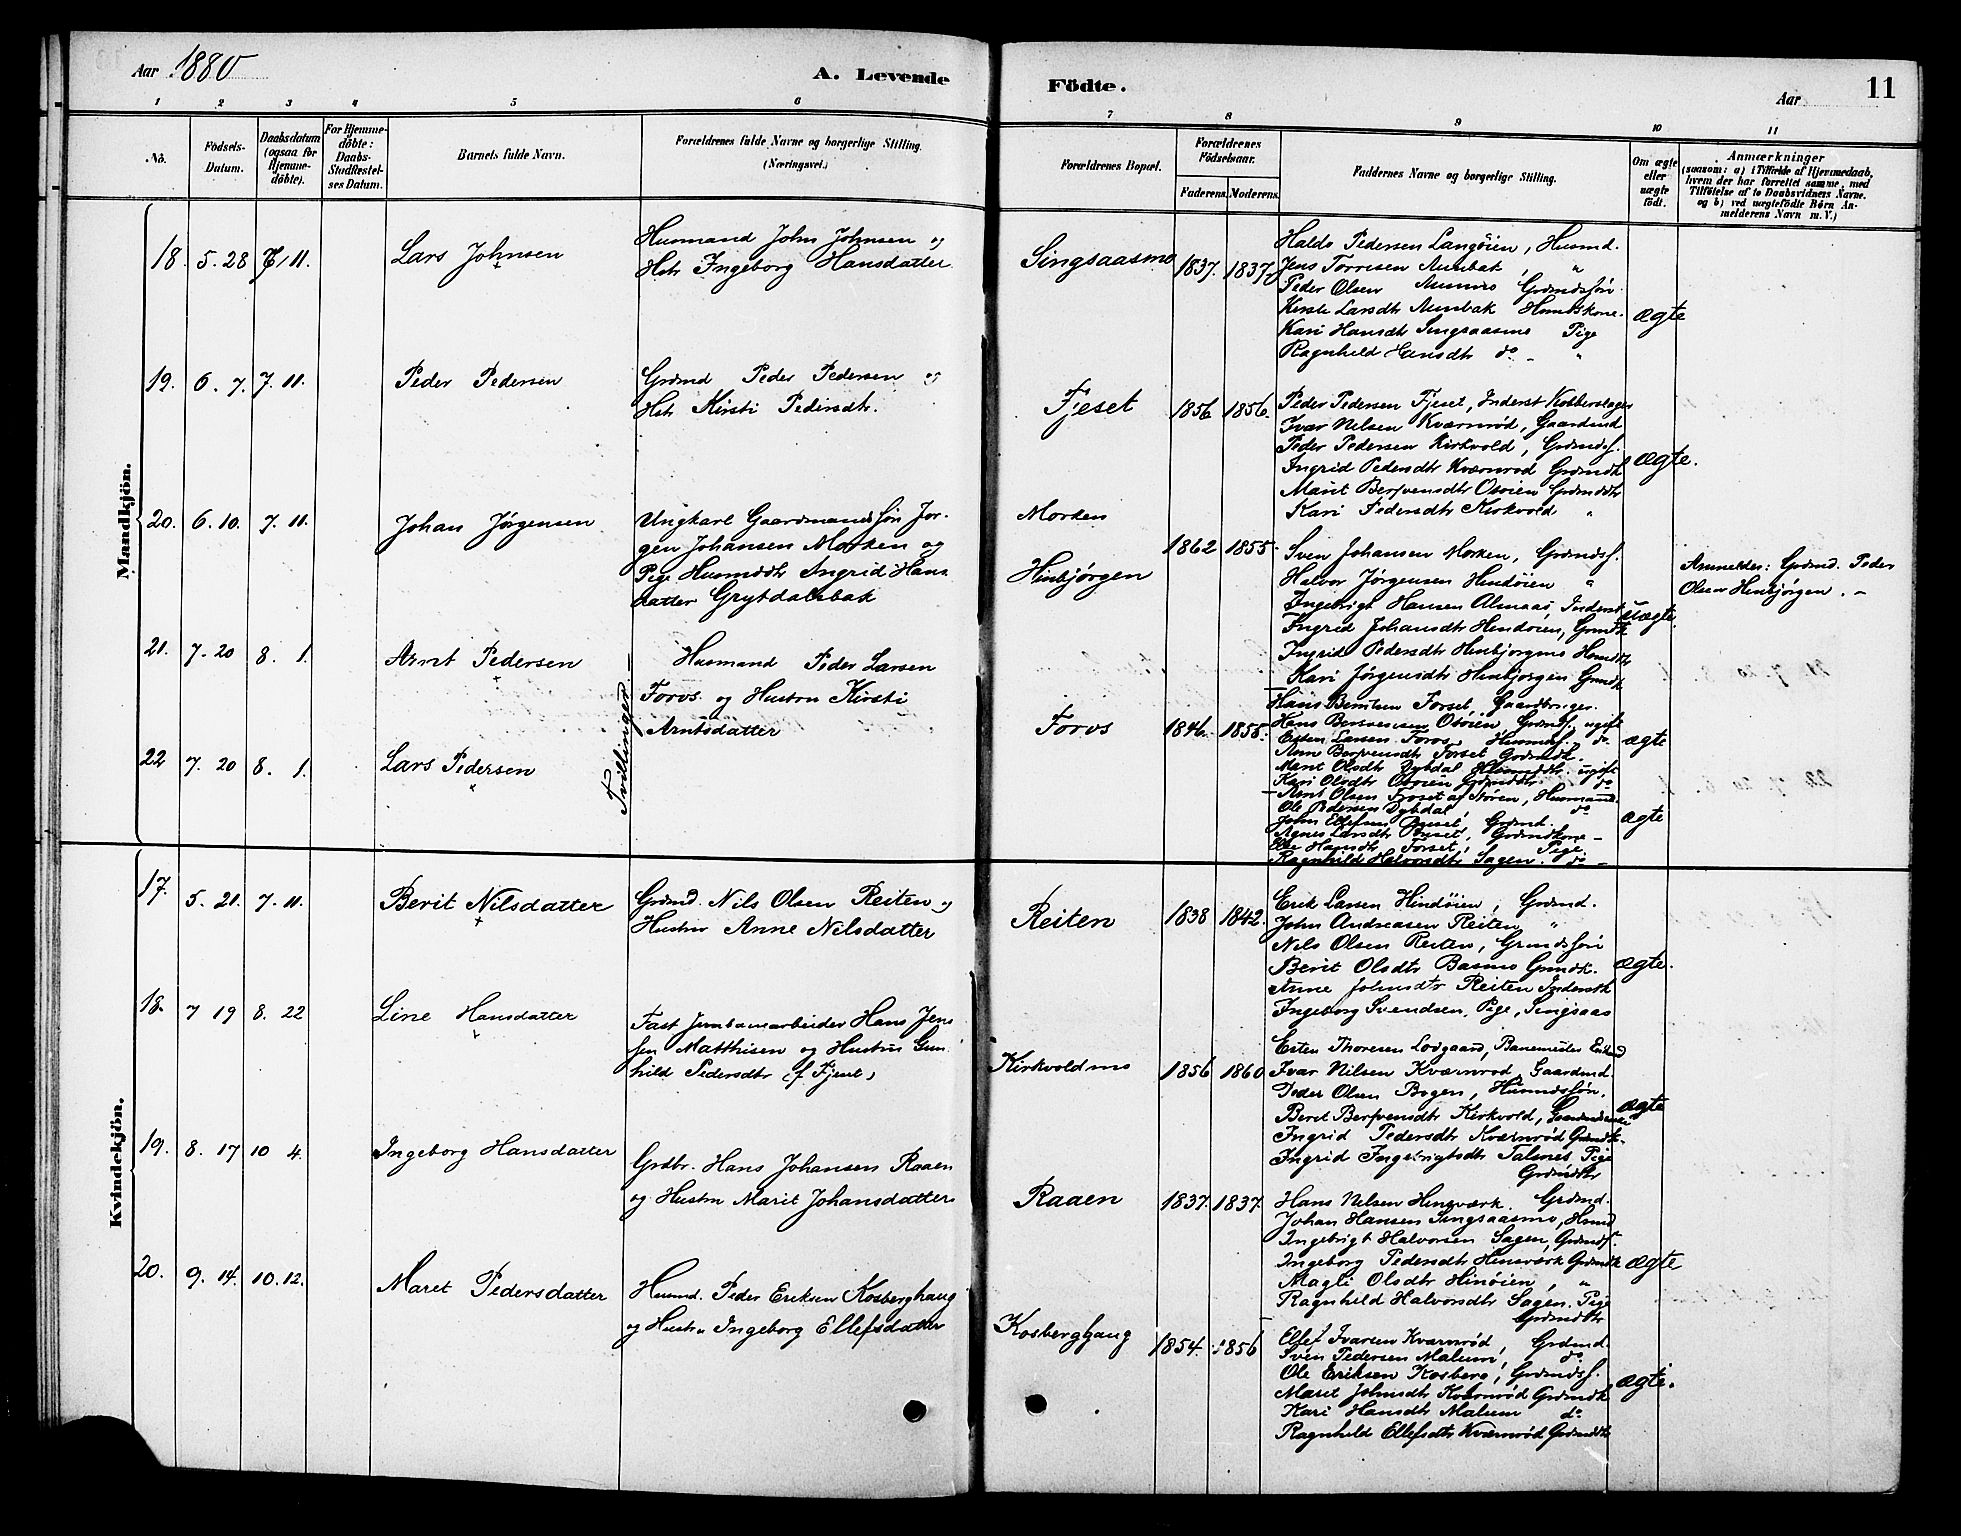 Aar 1880
A. Levende
Födte.
Aar
11
1 2 3 4 5 6 7 8 9 10 11
No.
Födsels-
Datum.
Daabsdatum
(ogsaa for
Hjemme-
döbte).
For Hjemme-
döbte:
Daabs-
Stadfæstel-
ses Datum.
Barnets fulde Navn.
Forældrenes fulde Navne og borgerlige Stilling.
(Næringsvei.)
Forældrenes Bopæl.
Forældrenes
Födselsaar.
Faderens. Moderens.
Faddernes Navne og borgerlige Stilling.
Om ægte
eller
uægte
födt.
Anmærkninger
(saasom: a) i Tilfælde af Hjemmedaab,
hvem der har forrettet samme, med
Tilföielse af to Daabsvidners Navne.
og b) ved uægtefödte Börn An-
melderens Navn m. V.)
Mandkjön.
18. 5. 28 7/11.
Lars Johnsen
Husmand John Johnsen og
Hstr Ingeborg Hansdatter
Singsaasmo
1837. 1837.
Haldo Pedersen Langöien, Husmd.
Jens Torresen Aunbak "
Peder Olsen Grdmdsön.
Kirsti Larsdtr Aunbak Husmdskone.
Kari Hansdtr Singsaasmo Pige
Ragnhild Hansdtr do - "
ægte
19. 6. 7. 7. 11.
Peder Pedersen
Grdmd Peder Pedersen og
Hstr Kirsti Pedersdtr.
Fjeset
1856 1856.
Peder Pedersen Fjeset, Inderst Kobberslager
Ivar Nilsen Kværnrød, Gaardmd
Peder Pedersen Kirkvold, Grdmds.
Ingrid Pedersdtr Kværnrød Grdmdk
Marit Bersvensdtr Osöien Grdmddtr
Kari Pedersdtr Kirkvold "
ægte.
20. 6. 10. 7. 11.
Johan Jørgensen
Ungkarl Gaardmandssön Jør-
gen Johansen Morken og
Pige Husmddtr Ingrid Hans
datter Grytdalsbak
Morken
Hinbjørgen
1862 1855.
Sven Johansen Morken, Grdmds.
Halvor Jørgensen Hindöien "
Ingebrigt Hansen Almaas, Inderst
Ingrid Johansdtr Hindöien, Grmdk
Ingrid Pedersdtr Hinbjørgmo Hsmddtr
Kari Jørgensdtr Hinbjørgen Grmdk
uægte.
Anmelder: Grdmd. Peder
Olsen Hinbjørgen. -
21. 7. 20 8. 1.
Arnt Pedersen
Tvillinger
Husmand Peder Larsen
Foros og Hustru Kirsti
Arntsdatter
Foros
1846. 1855.
Hans Forset, Gaardbruger.
Hans Bersvensen Osöien Grdmds. ugift
Esten Larsen Foros, Husmds. do.
Ane Bersvensdtr Forset Grdmdk.
Marit Olsdtr Dybdal Husmddtr ugift
Kari Olsdtr Osöien Grdmddtr. do
ægte
22 7. 20 8. 1.
Lars Pedersen
Arnt Olsen Froset af Stören, Husmand.
Ole Pedersen Dybdal do
John Ellefsen Buset, Grdmd.
Agnes Larsdtr Buset, Grdmdkone -
Hansdtr Forset, Pige.
Ragnhild Halvorsdtr Sagen. do -
ægte
Kvindekjön.
17. 5. 21. 7. 11.
Berit Nilsdatter
Grdmd. Nils Olsen Reiten og
Hustru Anne Nilsdatter
Reiten
1838 1842.
Erik Larsen Hindöien, Grdmd.
John Andreasen Reiten "
Nils Olsen Reiten, Grmdssön
Berit Olsdtr Basmo Grmdk.
Anne Johnsdtr Reiten Inderstk
Ingeborg Svendsen, Pige, Singsaas
ægte.
18. 7 19 8. 22
Line Hansdatter
Fast Jernbanearbeider Hans Jens
sen Matthisen og Hustru Gun
hild Pedersdtr (f Fjeset)
Kirkvoldmo
1856 1860
Esten Thoresen Lovgaard, Banemester
Ivar Nilsen Kværnrød Gaardmd.
Peder Olsen Bogen, Husmdssön.
Berit Bersvensdtr Kirkvold,
Ingrid Pedersdtr Kværnrød Grdmdk.
Ingrid Ingebrigtsdtr Talsnes Pige
Grdmddtr
ægte
19. 8. 17 10 4.
Ingeborg Hansdatter
Grdbr. Hans Johansen Raaen
og Hustru Marit Johansdatter
Raaen
1837. 1837.
Hans Nilsen Hinsværk. Grdmd.
Johan Hansen Singsaasmo, Husmd
Ingebrigt Halvorsen Sagen, Grdmds.
Ingeborg Pedersdtr Hinsværk Grdmdk
Magli Olsdtr Hinöien, "
Ragnhild Halvorsdtr Sagen. Pige
Grdmddtr
ægte
20. 9. 14. 10. 12.
Maret Pedersdatter
Husmd. Peder Eriksen Kosberghaug
og Hustru Ingeborg Ellefsdatter
Kosberghaug
1854. 1856
Ellef Ivarsen Kværnrød, Grdmd.
Sven Pedersen Malum, do.
Ole Eriksen Kosberg, Grdmds.
Maret Johnsdtr Kværnrød Grdmdk
Kari Hansdtr Malum do.
Ragnhild Ellefsdtr Kværnrød Grdmddtr
ægte.